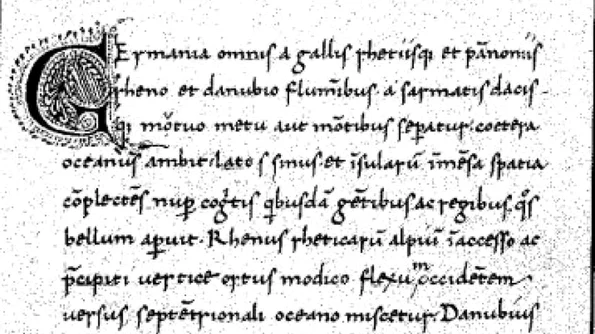 GErmania omnis a gallis rhetiisqȝ et pānoniis
rheno et danubio fluminībus. a sarmatis dacis-
qȝ mōtuo metu aut mōtibus sepatur. coetera
oceanus ambit. latos sinus et īsularū īmēsa spatia
cōplectēs nup cogitis qbusdā gētibus ac regibus. qōs
bellum apuit. Rhenus rheticarū alpiū īaccesso ac
pcipiti vertice ortus modico flexu m occidētem
versus septētrionali oceano miscetur. Danubius